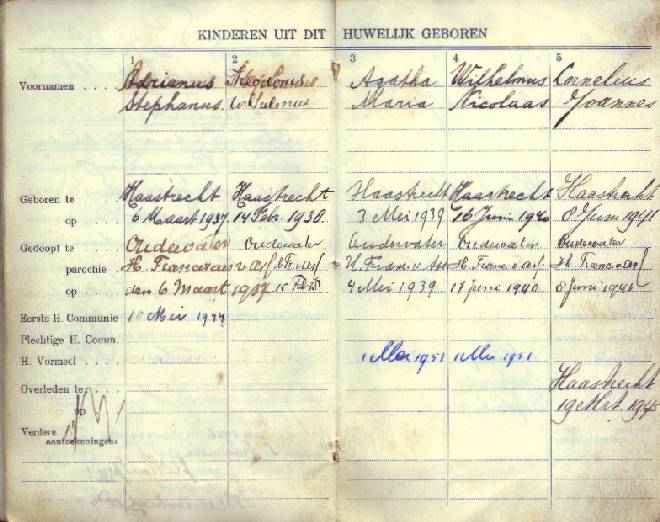 KINDEREN UIT DIT HUWELIJK GEBOREN
1 2 3 4 5
Voornamen Adrianus Theodorus Agatha Wilhelmus Cornelius
Stephanus Wilhelmus Maria Nicolaas Joannes
Geboren te Haastrecht Haastrecht Haastrecht Haastrecht Haastrecht
op 6 Maart 1937 14 Febr. 1938 3 Mei 1939 16 Juni 1940 8 Juni 1941
Gedoopt te Oudewater Oudewater Oudewater Oudewater Oudewater
parochie H. Franciscus v. Ass H. Fr. v. Ass H. Fran. v. Ass H. Franc v. Ass H. Franc v. Ass
op den 6 Maart 1937 15 Febr 4 Mei 1939 17 Juni 1940 8 Juni 1941
Eerste H. Communie 10 Mei 1944
Plechtige H. Comm.
H. Vormsel 1 Mei 1951 1 Mei 1951
Overleden te Haastrecht
op 19 Mrt.
Verdere
aanteekeningen